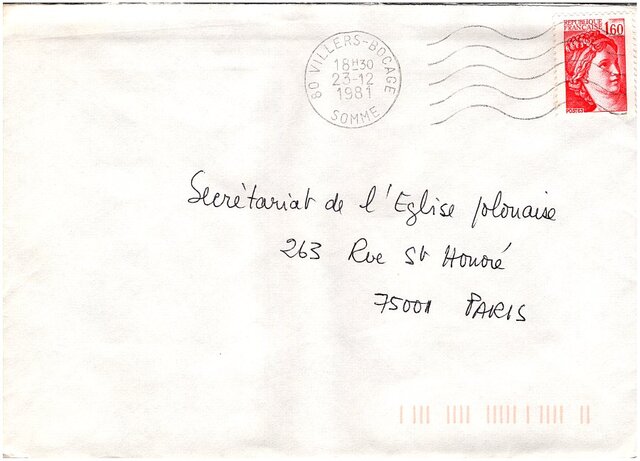 RÉPUBLIQUE
FRANÇAISE 1,60
POSTES
80 VILLERS-BOCAGE
18H30
23-12
1981
SOMME
Secrétariat de l'Eglise polonaise
263 Rue St Honoré
75001 PARIS